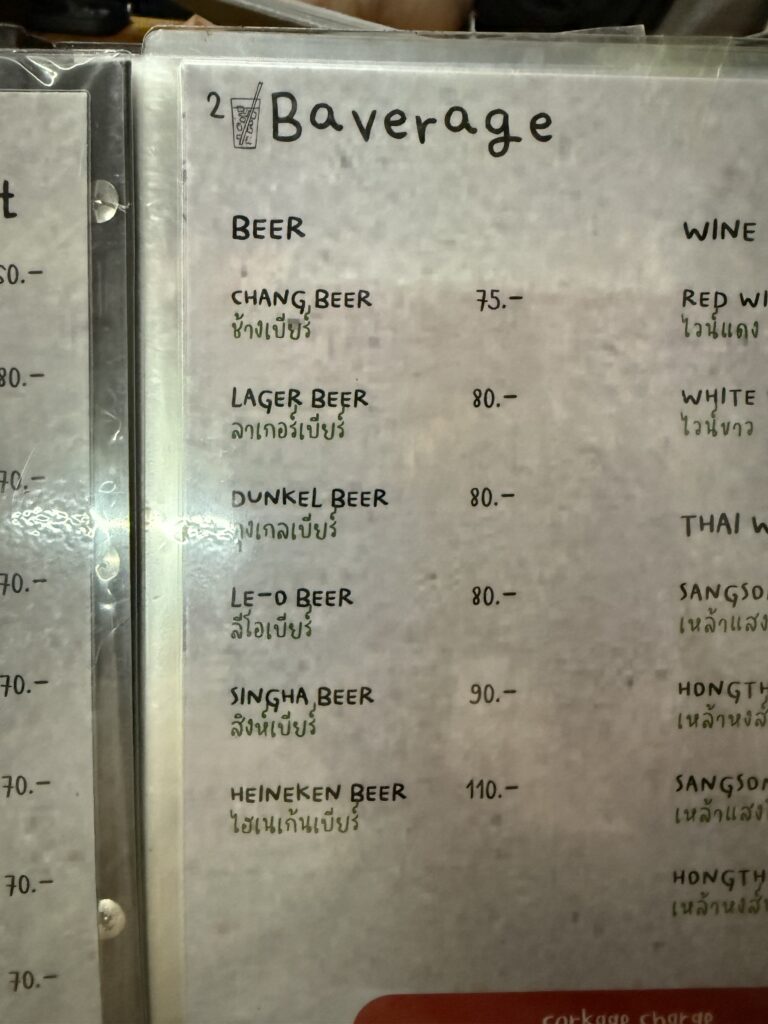 2 Baverage
BEER
CHANG BEER 75.-
ช้างเบียร์
LAGER BEER 80.-
ลาเกอร์เบียร์
DUNKEL BEER 80.-
ดุงเกลเบียร์
LE-O BEER 80.-
ลีโอเบียร์
SINGHA BEER 90.-
สิงห์เบียร์
HEINEKEN BEER 110.-
ไฮเนเก้นเบียร์
WINE
RED
ไวน์แดง
WHITE
ไวน์ขาว
THAI
เหล้าแสง
เหล้าหงส์
เหล้าแสง
เหล้าหงส์
corkage charge
80.-
70.-
70.-
70.-
70.-
70.-
70.-